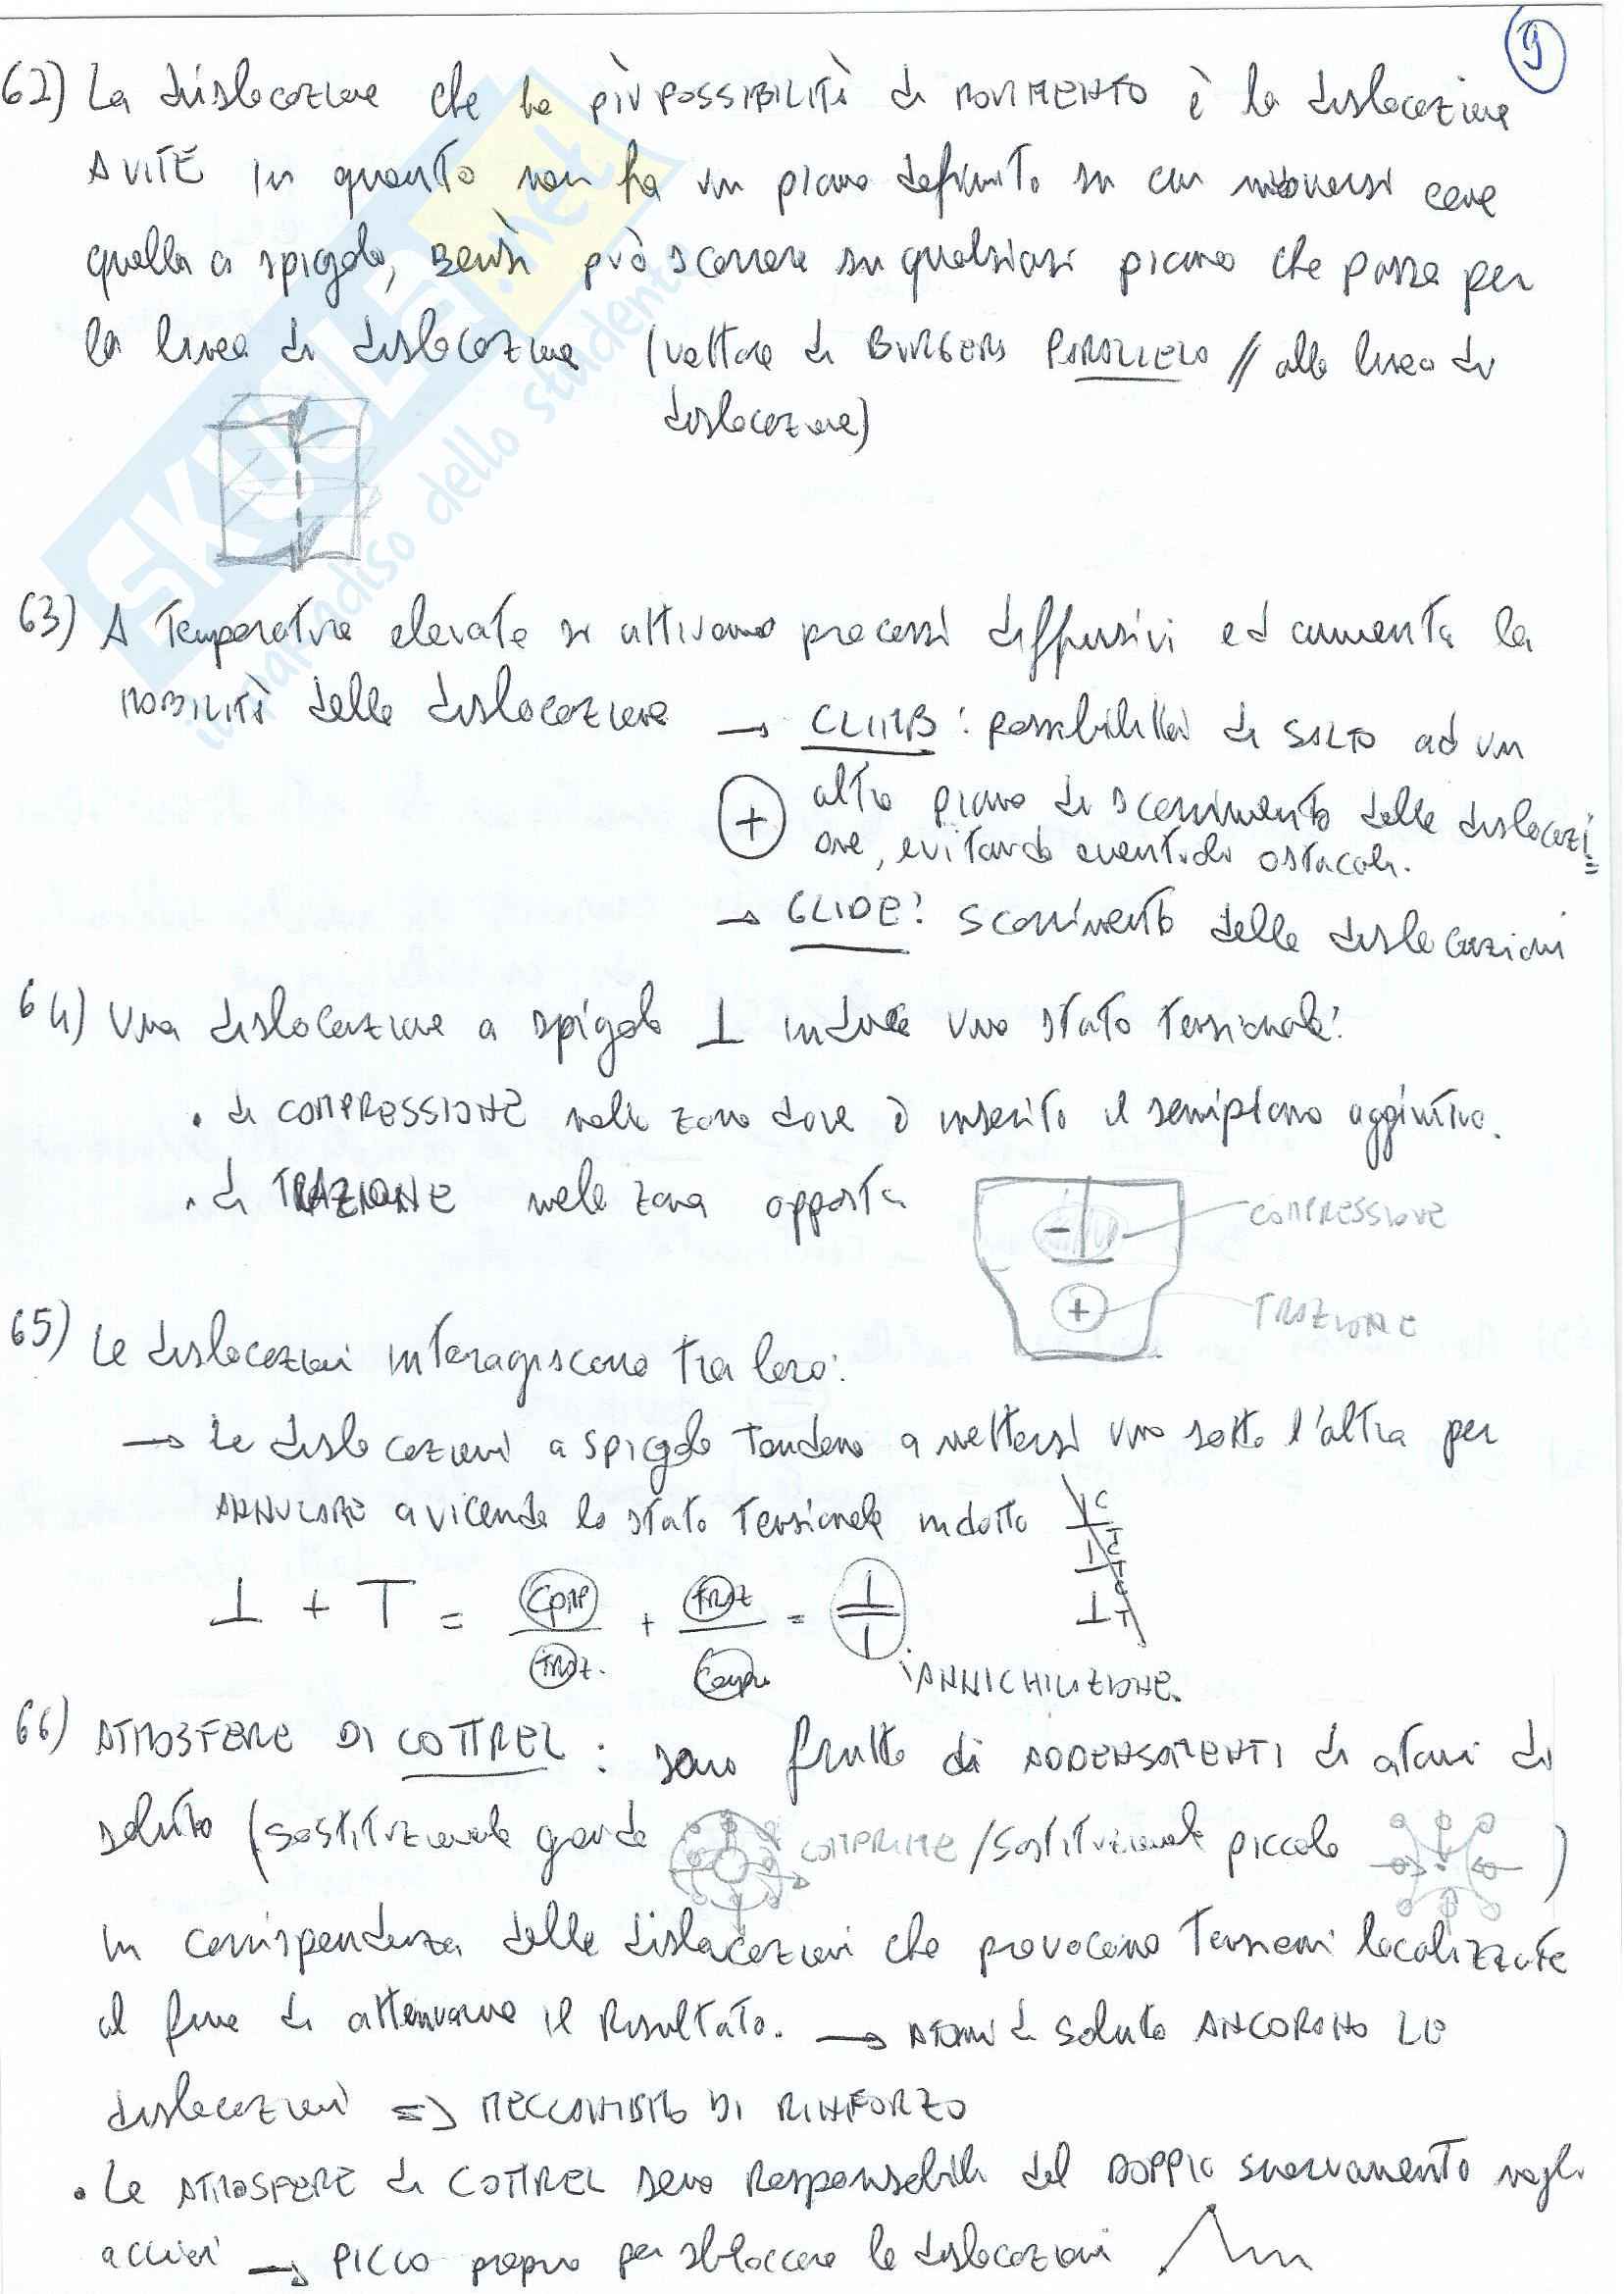 9
62) La dislocazione che ha più POSSIBILITÀ di MOVIMENTO è la dislocazione
A VITE in quanto non ha un piano definito su cui muoversi come
quella a spigolo, BENSÌ può scorrere su qualsiasi piano che passa per
la linea di dislocazione (vettore di BURGERS PARALLELO // alla linea di
dislocazione)
SKUOLA.net
il paradiso dello studente
63) A Temperature elevate si attivano processi diffusivi ed aumenta la
MOBILITÀ delle dislocazione → CLIMB: possibilità di SALTO ad un
+ altro piano di scorrimento delle dislocazi
one, evitando eventuali ostacoli.
→ GLIDE: Scorrimento delle dislocazioni
64) Una dislocazione a spigolo ⊥ induce uno stato Tensionale:
• di COMPRESSIONE nella zona dove è inserito il semipiano aggiuntivo.
• di TRAZIONE nella zona opposta
- COMPRESSIONE
+ TRAZIONE
65) Le dislocazioni interagiscono tra loro:
→ Le dislocazioni a spigolo Tendono a mettersi una sotto l'altra per
ANNULARE a vicenda lo stato Tensionale indotto
⊥ + T = COMP/TRAZ. + TRAZ/Comp. =
ANNICHILAZIONE.
66) ATMOSFERE DI COTTREL : sono frutto di ADDENSAMENTI di atomi di
soluto (sostituzionale grande COMPRIME / Sostituzionale piccolo )
in corrispondenza delle dislocazioni che provocano Tensioni localizzate
al fine di attenuarne il Risultato. → ATOMI di Soluto ANCORANO LE
dislocazioni ⇒ MECCANISMO DI RINFORZO
• Le ATMOSFERE di COTTREL sono Responsabili del DOPPIO snervamento negli
acciai → PICCO proprio per sbloccare le dislocazioni